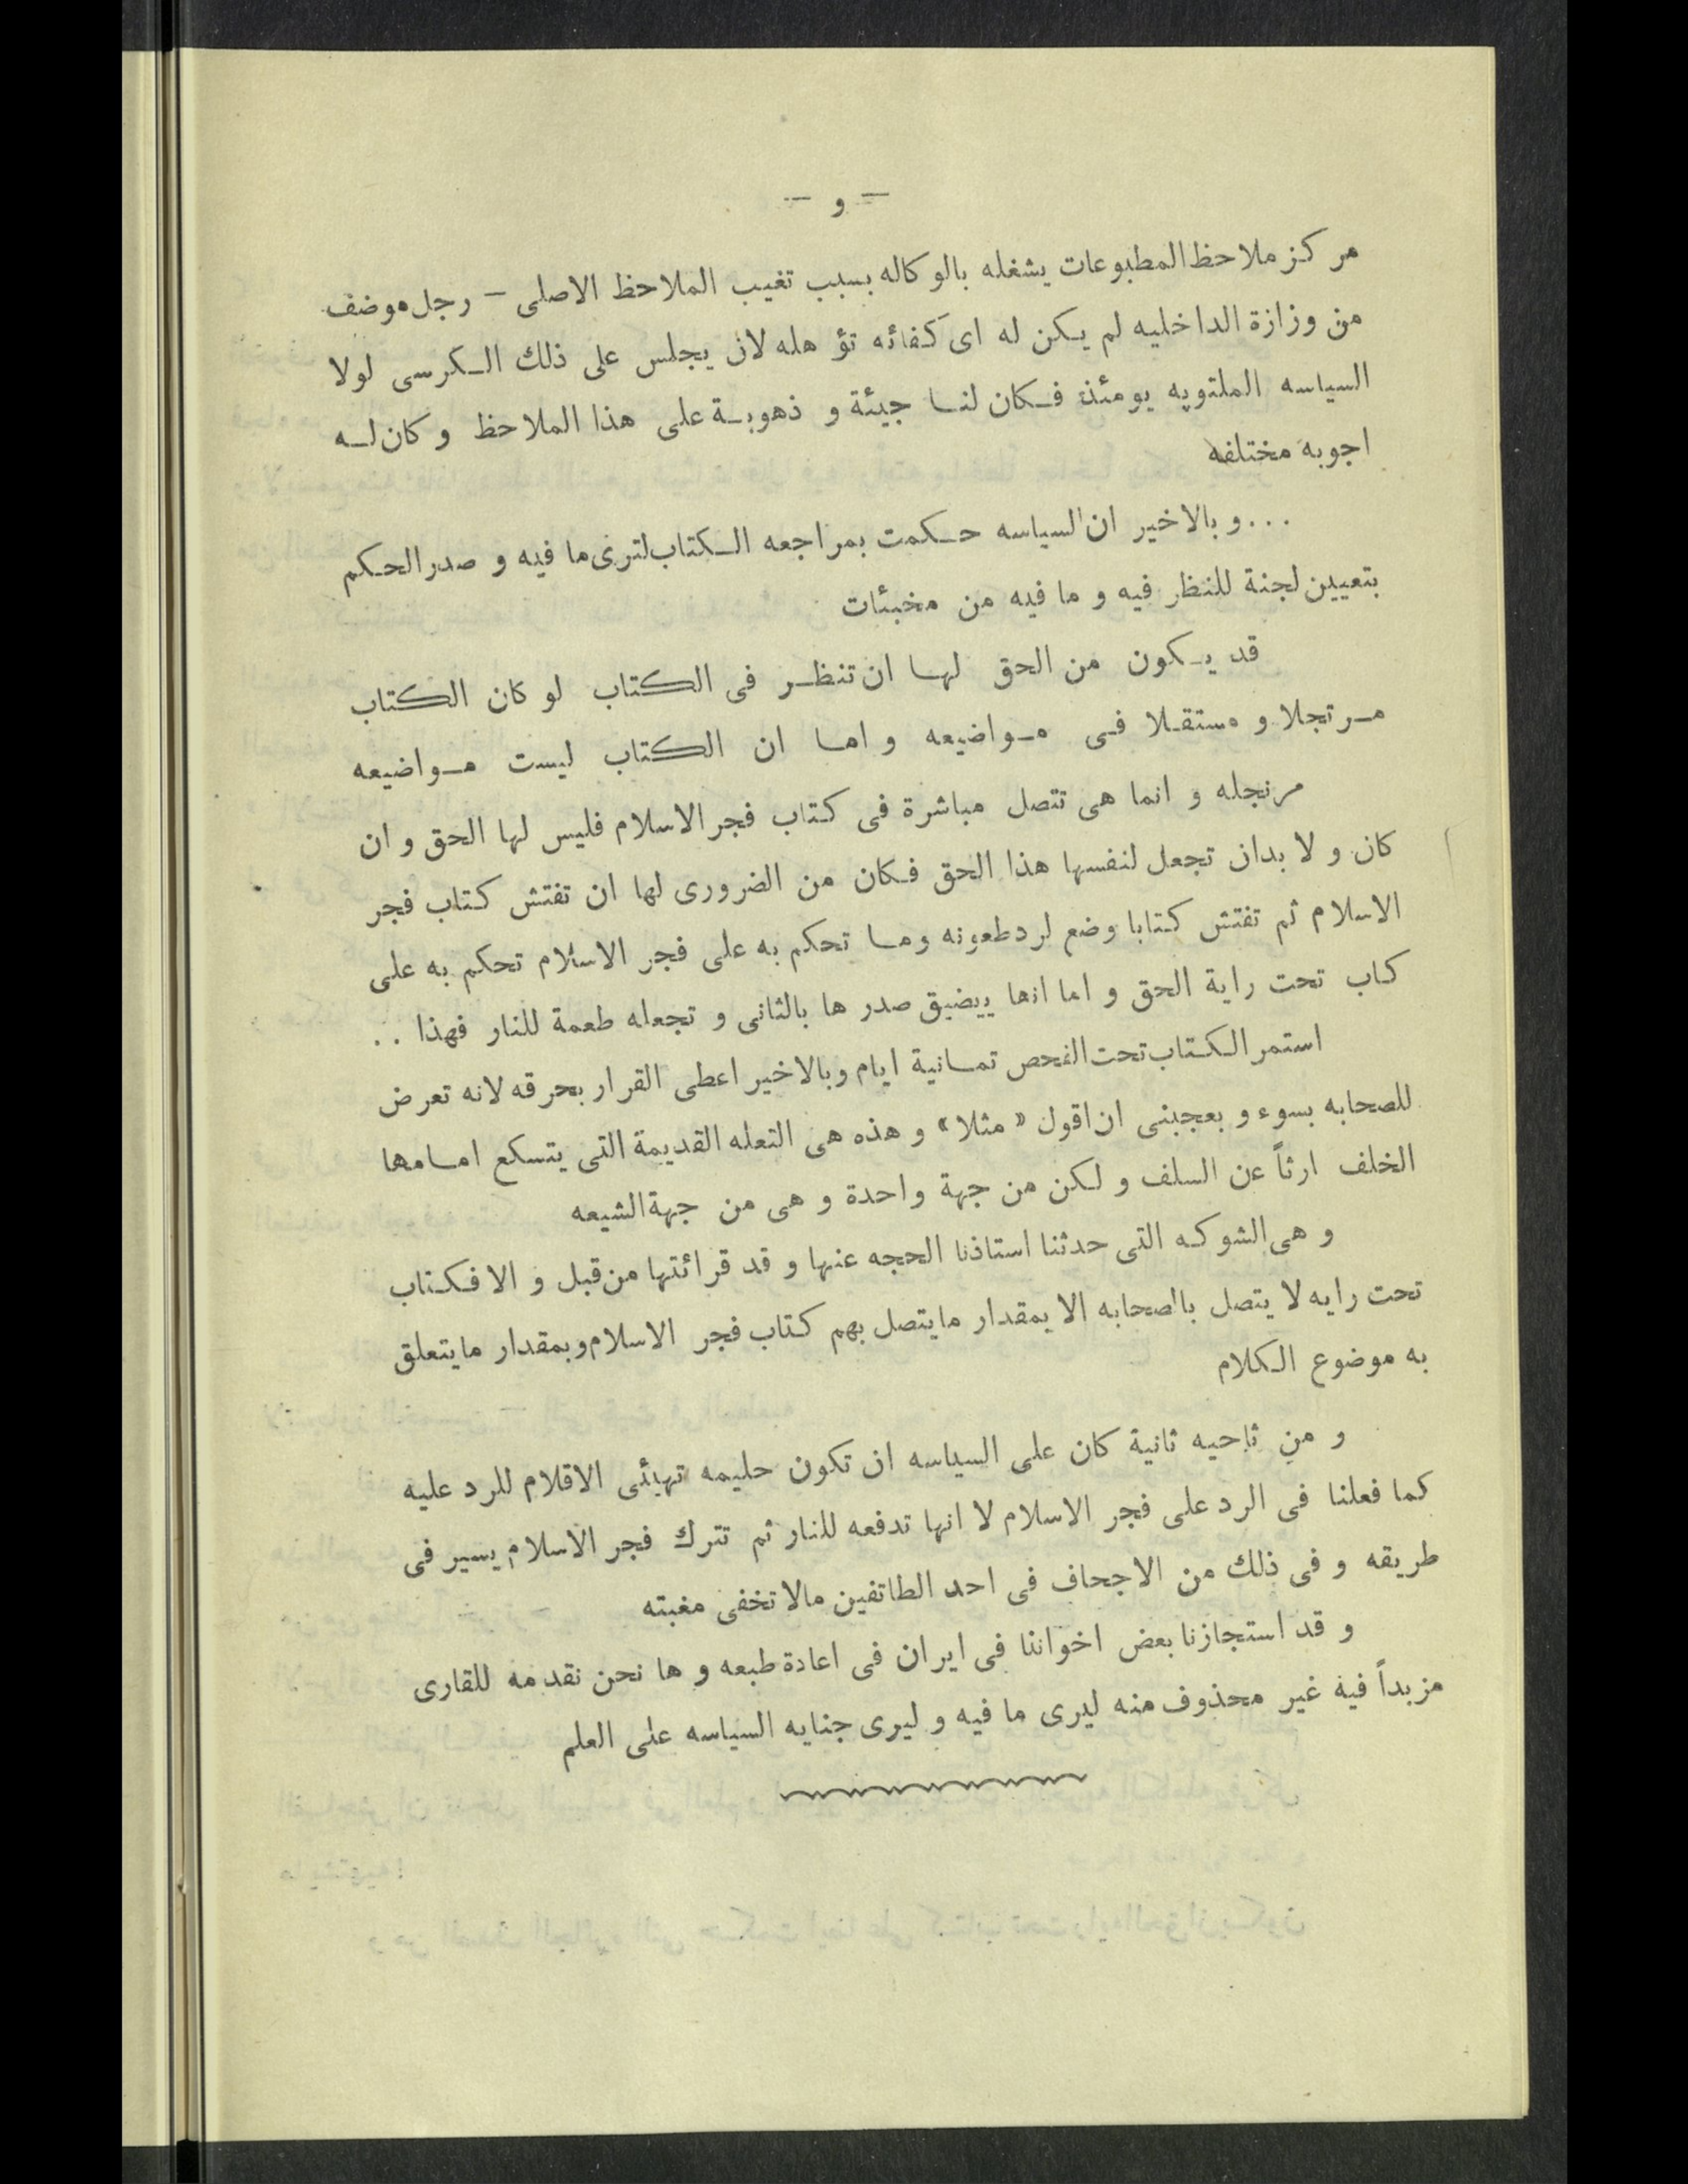 — و —
مركز ملاحظ المطبوعات يشغله بالوكاله بسبب تغيب الملاحظ الاصلى — رجل موضف
من وزازة الداخليه لم يكن له اى كفائه تؤهله لان يجلس على ذلك الكرسى لولا
السياسه الملتويه يومئذ فكان لنا جيئة و ذهوبة على هذا الملاحظ و كان له
اجوبه مختلفه
...و بالاخير ان السياسه حكمت بمراجعه الكتاب لترى ما فيه و صدر الحكم
بتعيين لجنة للنظر فيه و ما فيه من مخبئات
قد يكون من الحق لها ان تنظر فى الكتاب لو كان الكتاب
مرتجلا و مستقلا فى مواضيعه و اما ان الكتاب ليست مواضيعه
مرنجله و انما هى تتصل مباشرة فى كتاب فجر الاسلام فليس لها الحق و ان
كان و لا بدان تجعل لنفسها هذا الحق فكان من الضرورى لها ان تفتش كتاب فجر
الاسلام ثم تفتش كتابا وضع لرد طعونه وما تحكم به على فجر الاسلام تحكم به على
كاب تحت راية الحق و اما انها ييضيق صدر ها بالثانى و تجعله طعمة للنار فهذا ..
استمر الكتاب تحت الفحص تمانية ايام وبالاخير اعطى القرار بحرقه لانه تعرض
للصحابه بسوء و بعجبنى ان اقول « مثلا » و هذه هى التعله القديمة التى يتسكع امامها
الخلف ارثاً عن السلف و لكن من جهة واحدة و هى من جهة الشيعه
و هى الشوكه التى حدثنا استاذنا الحجه عنها و قد قرائتها من قبل و الا فكتاب
تحت رايه لا يتصل بالصحابه الا بمقدار ما يتصل بهم كتاب فجر الاسلام وبمقدار ما يتعلق
به موضوع الكلام
و من ناحيه ثانية كان على السياسه ان تكون حليمه تهيئى الاقلام للرد عليه
كما فعلنا فى الرد على فجر الاسلام لا انها تدفعه للنار ثم تترك فجر الاسلام يسير فى
طريقه و فى ذلك من الاجحاف فى احد الطاتفين مالا تخفى مغبته
و قد استجازنا بعض اخواننا فى ايران فى اعادة طبعه و ها نحن نقدمه للقارى
مزبداً فيه غير محذوف منه ليرى ما فيه و ليرى جنايه السياسه على العلم